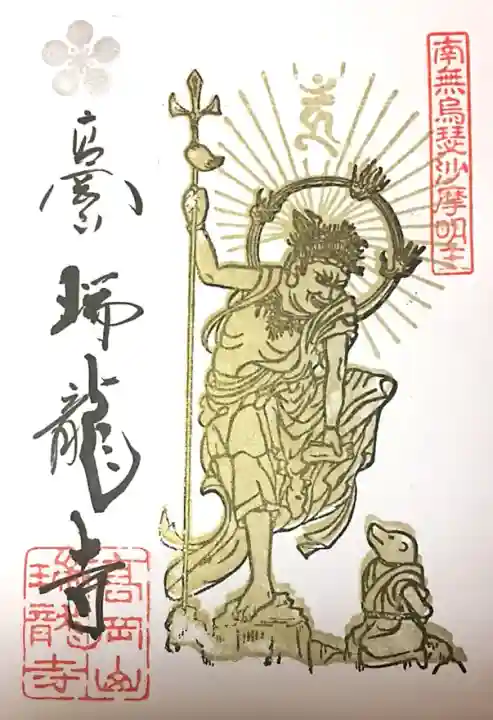 南無烏瑟沙摩明王
高岡山
瑞龍寺
高岡山
瑞龍寺